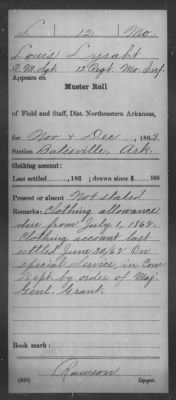 L | 12 | Mo.
Louis Lysaht
Q.M. Sgt. 12 Regt. Mo. Inf.
Appears on
Muster Roll
of Field and Staff, Dist. Northeastern Arkansas,
for Nov & Dec, 1863.
Station Batesville, Ark.
Clothing account:
Last settled , 186 ; drawn since $ 100
Present or absent Not stated
Remarks: Clothing allowance
due from July 1, 1862.
Clothing account last
settled June 30/62 On
special service in Com
Dept by order of Maj.
Genl. Grant.
Book mark:
Rawson
Copyist.